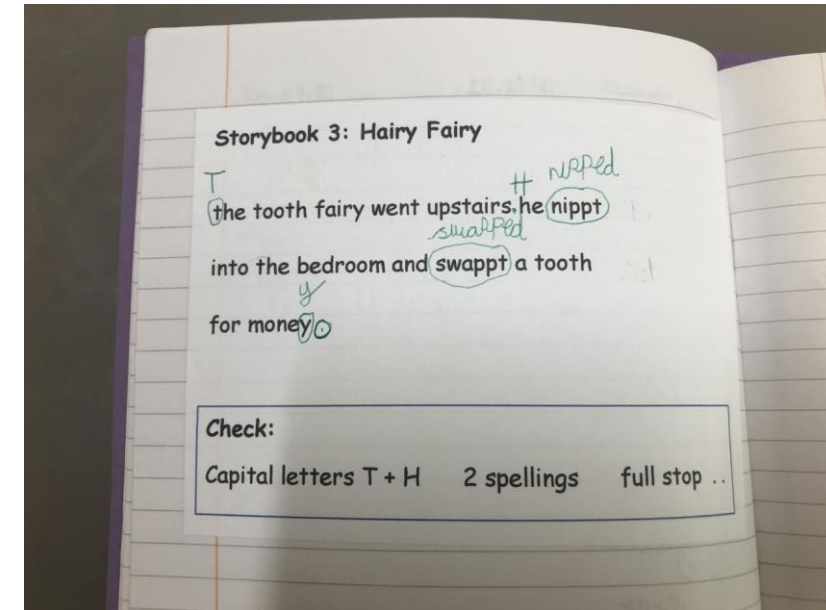 Storybook 3: Hairy Fairy
T H nipped
the tooth fairy went upstairs.he nippt
swapped
into the bedroom and swappt a tooth
y
for money.
Check:
Capital letters T + H 2 spellings full stop ..